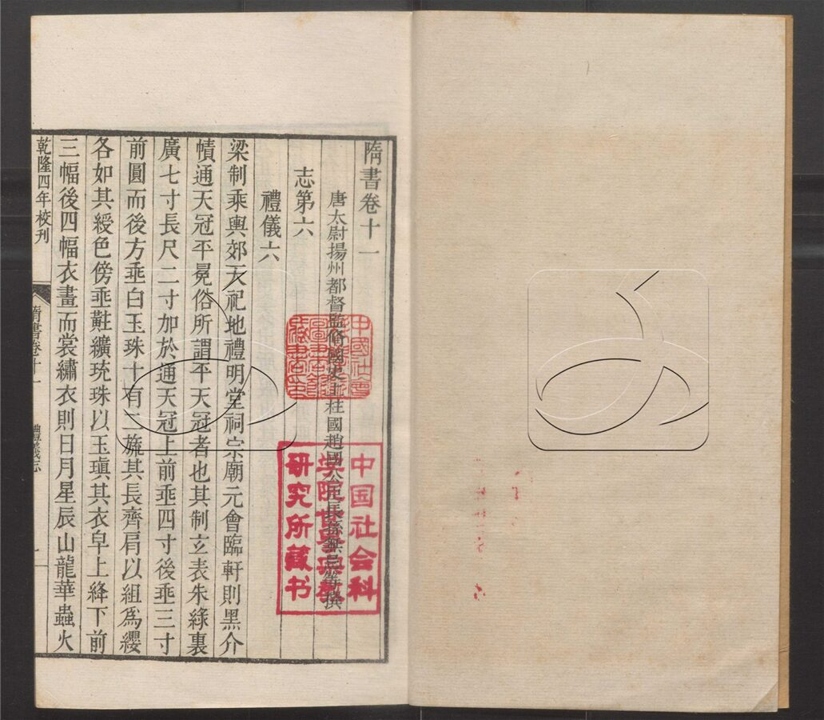 隋書卷十一
唐太尉揚州都督監修國史上柱國趙國公臣長孫無忌等撰
志第六
禮儀六
梁制乘輿郊天祀地禮明堂祠宗廟元會臨軒則黑介
幘通天冠平冕俗所謂平天冠者也其制玄表朱綠裏
廣七寸長尺二寸加於通天冠上前垂四寸後垂三寸
前圓而後方垂白玉珠十有二旒其長齊肩以組為纓
各如其綬色傍垂黈纊珫珠以玉瑱其衣皁上絳下前
三幅後四幅衣畫而裳繡衣則日月星辰山龍華蟲火
乾隆四年校刊
隋書卷十一
禮儀志
一
中國社會
圖書館
藏書
中国社会科
学院世界宗教
研究所藏书